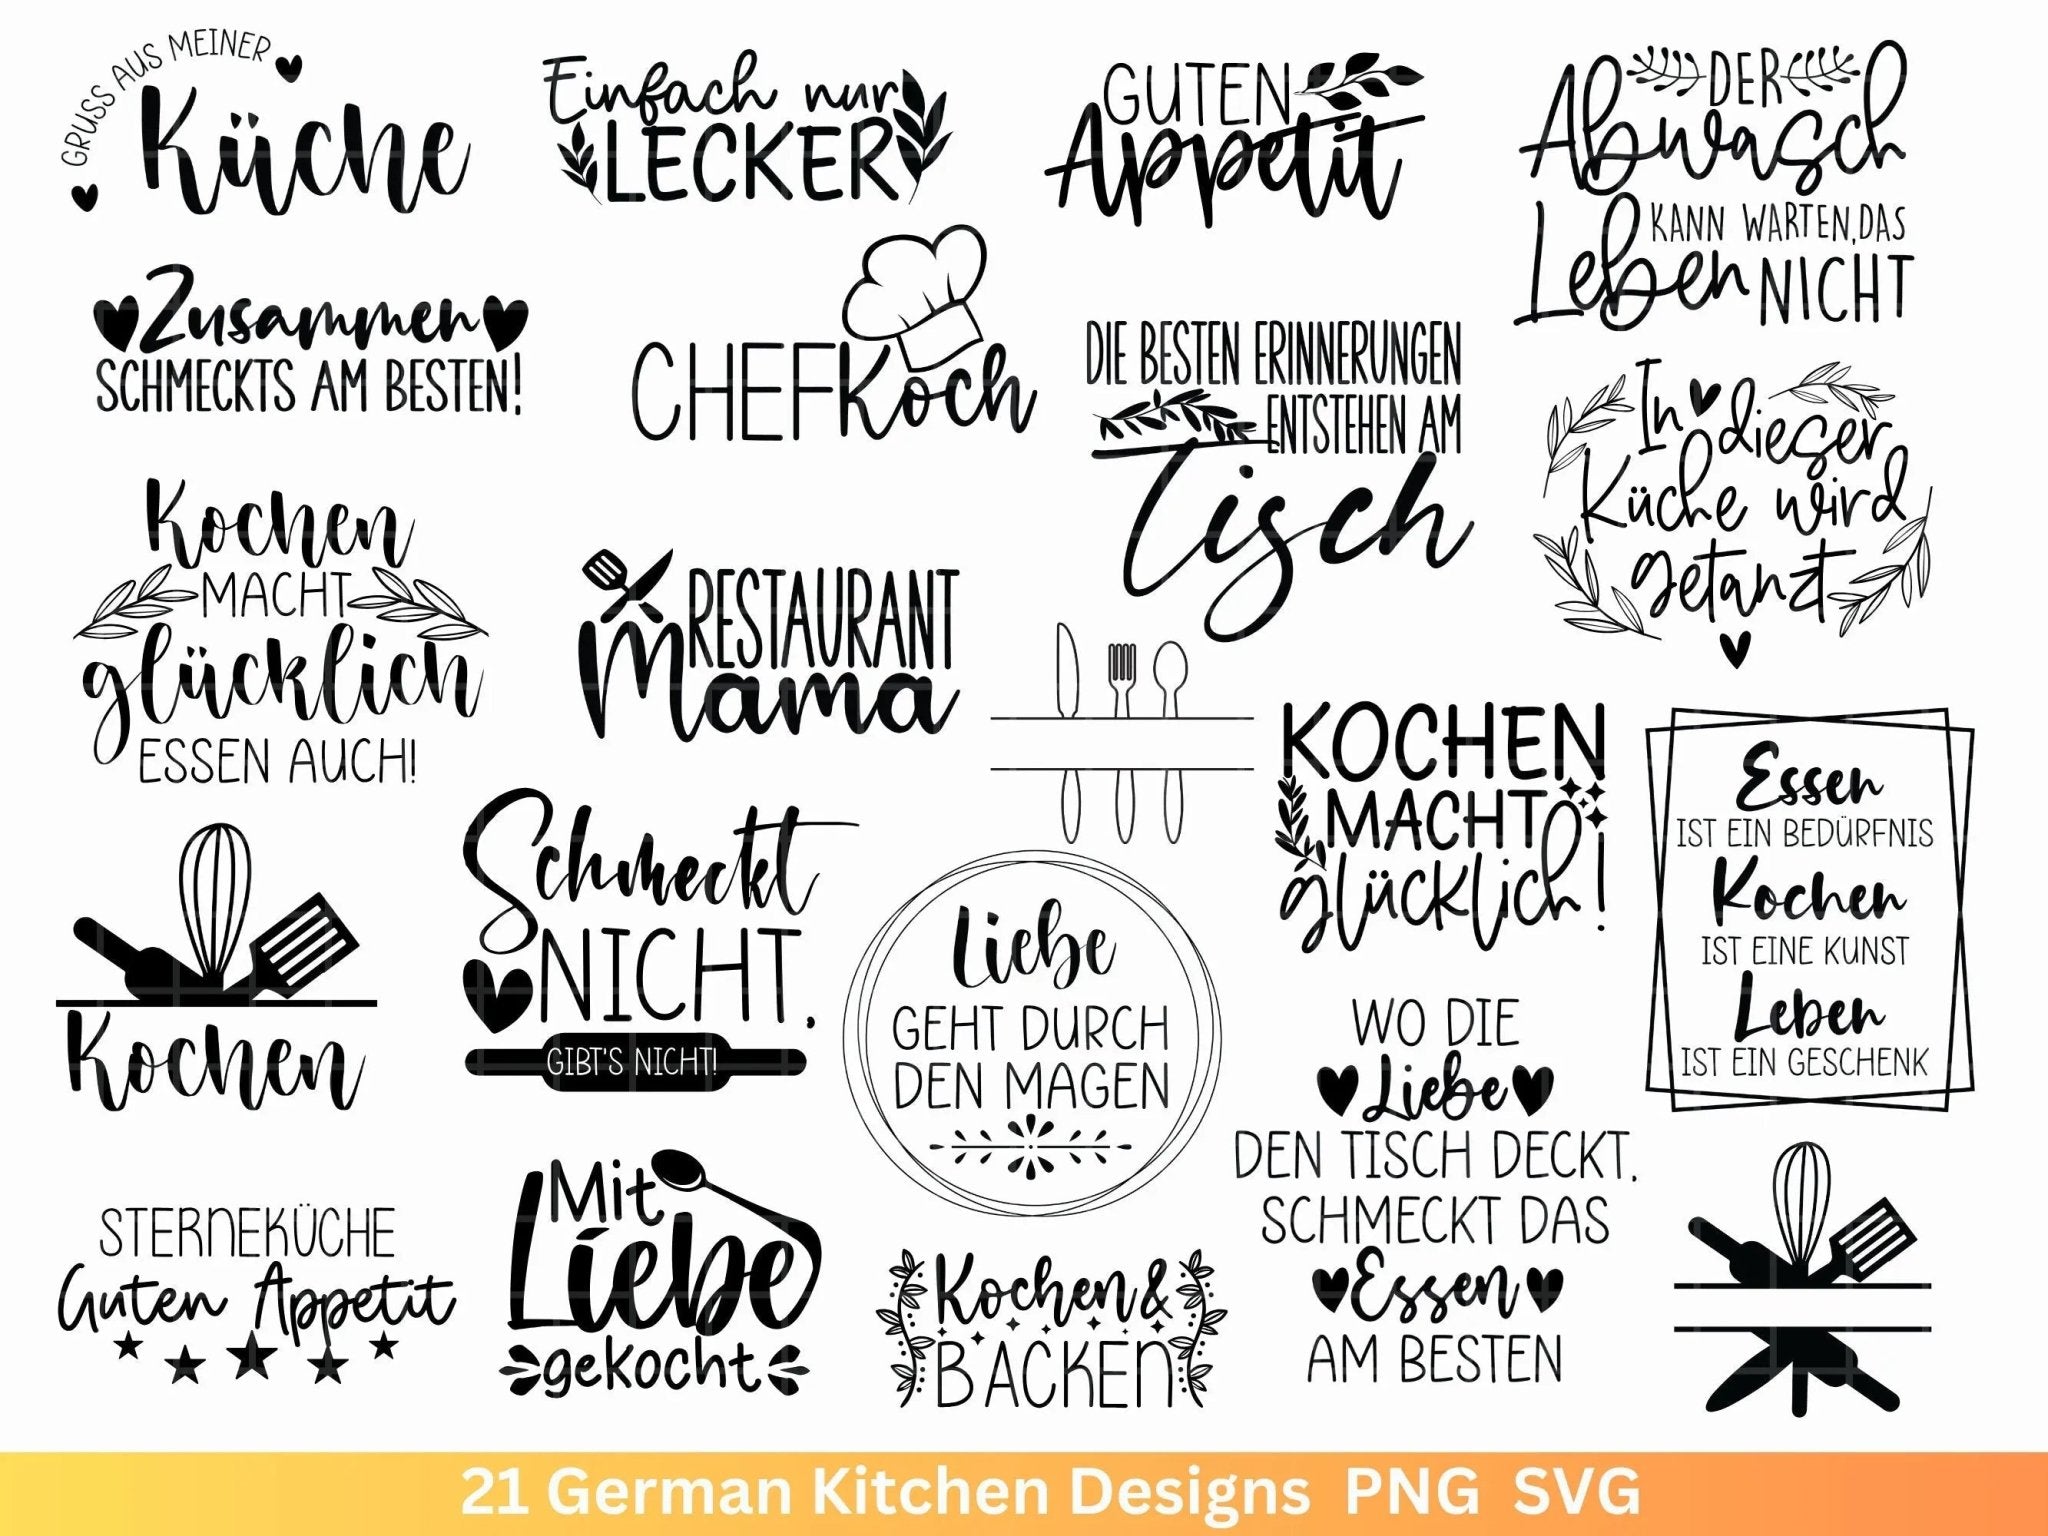 GRUSS AUS MEINER
Küche
Einfach nur
LECKER
GUTEN
Appetit
DER
Abwasch
KANN WARTEN, DAS
Leben NICHT
Zusammen
SCHMECKTS AM BESTEN!
CHEFKoch
DIE BESTEN ERINNERUNGEN
ENTSTEHEN AM
Tisch
In dieser
Küche wird
getanzt
Kochen
MACHT
glücklich
ESSEN AUCH!
RESTAURANT
Mama
KOCHEN
MACHT
glücklich!
Essen
IST EIN BEDÜRFNIS
Kochen
IST EINE KUNST
Leben
IST EIN GESCHENK
Kochen
Schmeckt
NICHT,
GIBT'S NICHT!
Liebe
GEHT DURCH
DEN MAGEN
WO DIE
Liebe
DEN TISCH DECKT,
SCHMECKT DAS
Essen
AM BESTEN
STERNEKÜCHE
Guten Appetit
Mit
Liebe
gekocht
Kochen &
BACKEN
21 German Kitchen Designs PNG SVG